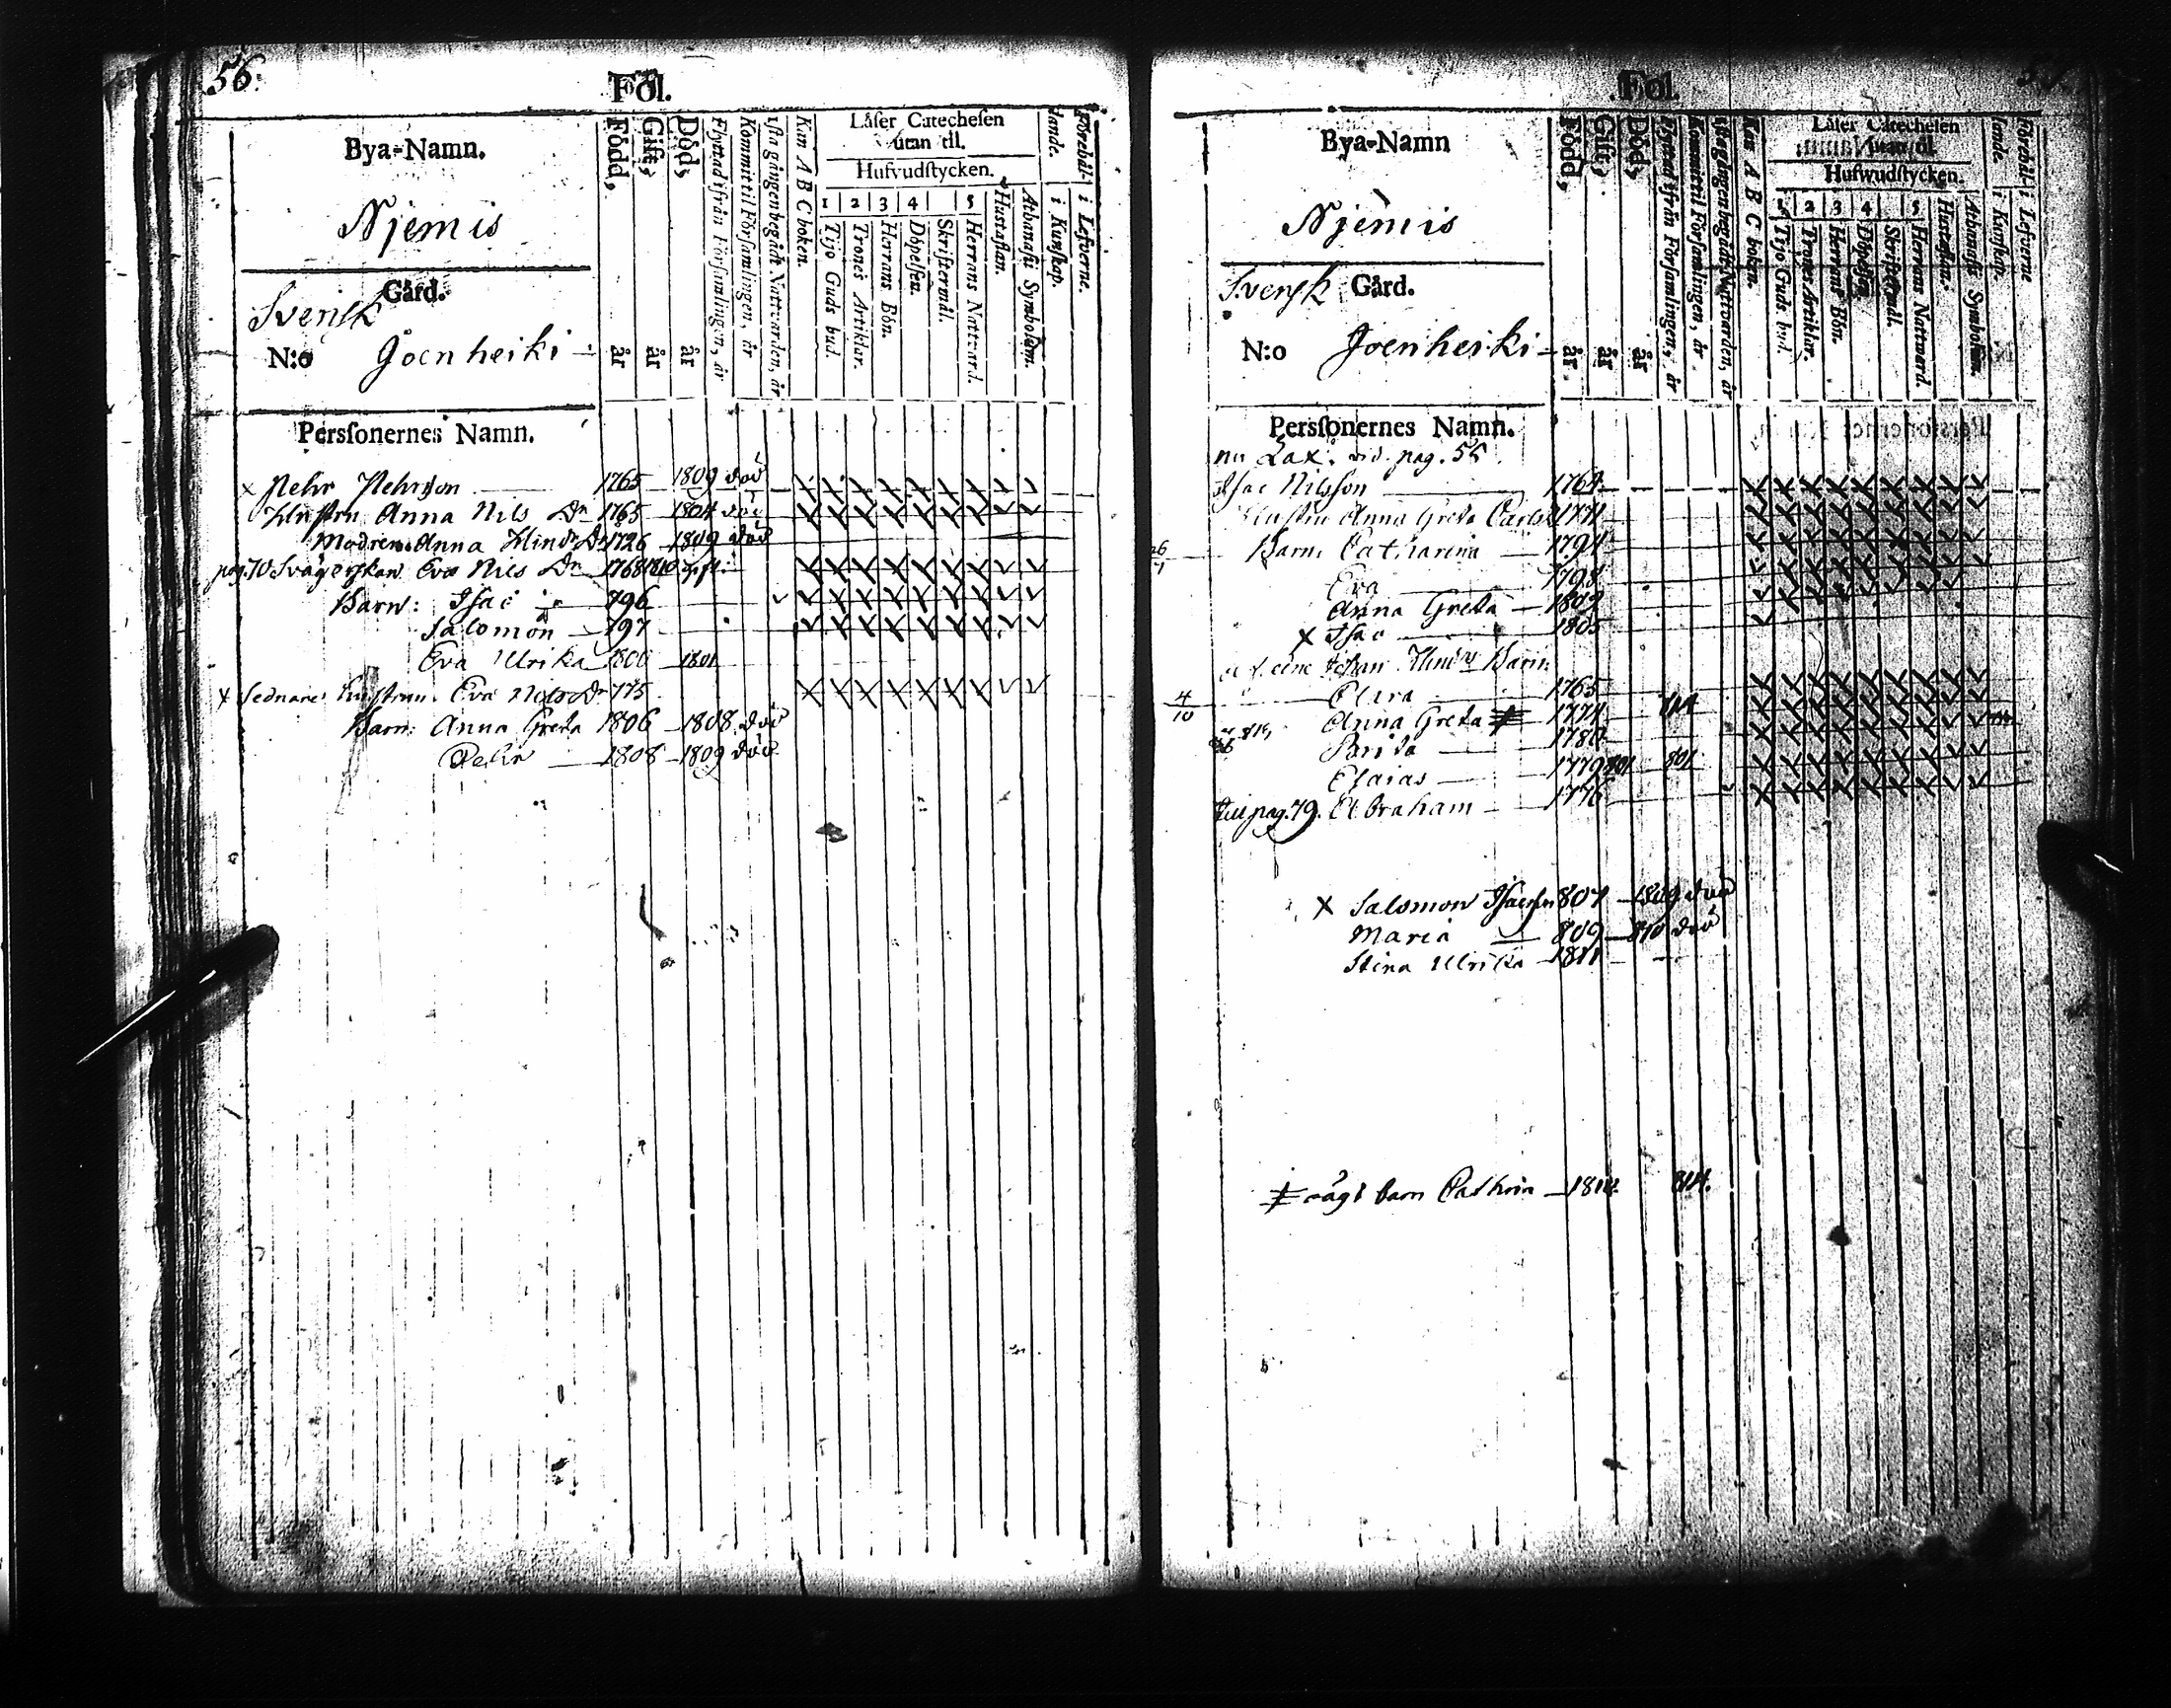 56.
Föl.
Bya-Namn.
Njemis
Gård.
Svensk
N:o Joenheiki
Född, år
Gift, år
Död, år
Flyttad ifrån Församlingen, år
Kommit til Församlingen, år
1sta gången begådt Nattvarden, år
Kan A B C boken.
Låser Catechesen
utan til.
Hufvudstycken.
1 2 3 4 5
Tijo Guds bud.
Trones Artiklar.
Herrans Bön.
Döpelsen.
Skriftermål.
Herrans Nattvard.
Hustaflan.
Athanasii Symbolum.
Förehållande.
i Kunskap.
i Lefverne.
Persfonernes Namn.
x Pehr Pehrsson 1765 1809 död
Hustru Anna Nils Dr 1765 1804 död
Modren Anna Hind Dr 1726 1809 död
pag. 70 Svägerskan Eva Nils Dr 1768 1810 gift
Barn: Isac 796
Salomon 797
Eva Ulrika 1800 1801
x Sednare hustrun Eva Nils Dr 775
Barn: Anna Greta 1806 1808 död
Pehr 1808 1809 död
Fol.
Bya-Namn
Njemis
Svensk Gård.
N:o Joenheiki
Född, år
Gift, år
Död, år
Flyttad ifrån Församlingen, år
Kommit til Församlingen, år
1sta gången begådt Nattvarden, år
Kan A B C boken.
Låser Catechesen
utan til.
Hufwudstycken.
1 2 3 4 5
Tijo Guds bud.
Trones Artiklar.
Herrans Bön.
Döpelsen.
Skriftermål.
Herrans Natward.
Hustaflan.
Athanasii Symbolum.
Förehållande.
i Kunskap.
i Lefverne
Persfonernes Namn.
nu Lax. vid. pag. 55
Isac Nilsson 1764
Hustru Anna Greta Carls 1771
Barn: Catharina 1794
Eva 1798
Anna Greta 1802
x Isac 1805
Johan Hind Barn
Clara 1765
4/10 Anna Greta ‡ 1774 814
Brita 1780
Elaias 1779 801 801
till pag. 79. Abraham 1776
x Salomon Isacsson 807 1809 död
Maria 809 810 död
Stina Ulrika 1811
‡ oägt barn Cathrin 1812 814.